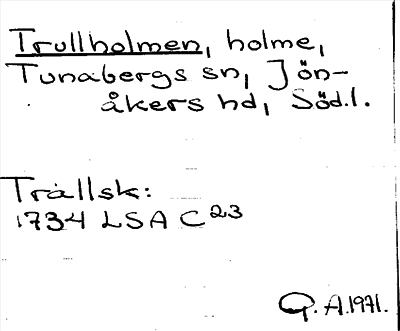 Trullholmen, holme,
Tunabergs sn, Jön-
åkers hd, Södl.
Trällsk:
1734 LSA C23
G.A.1971.